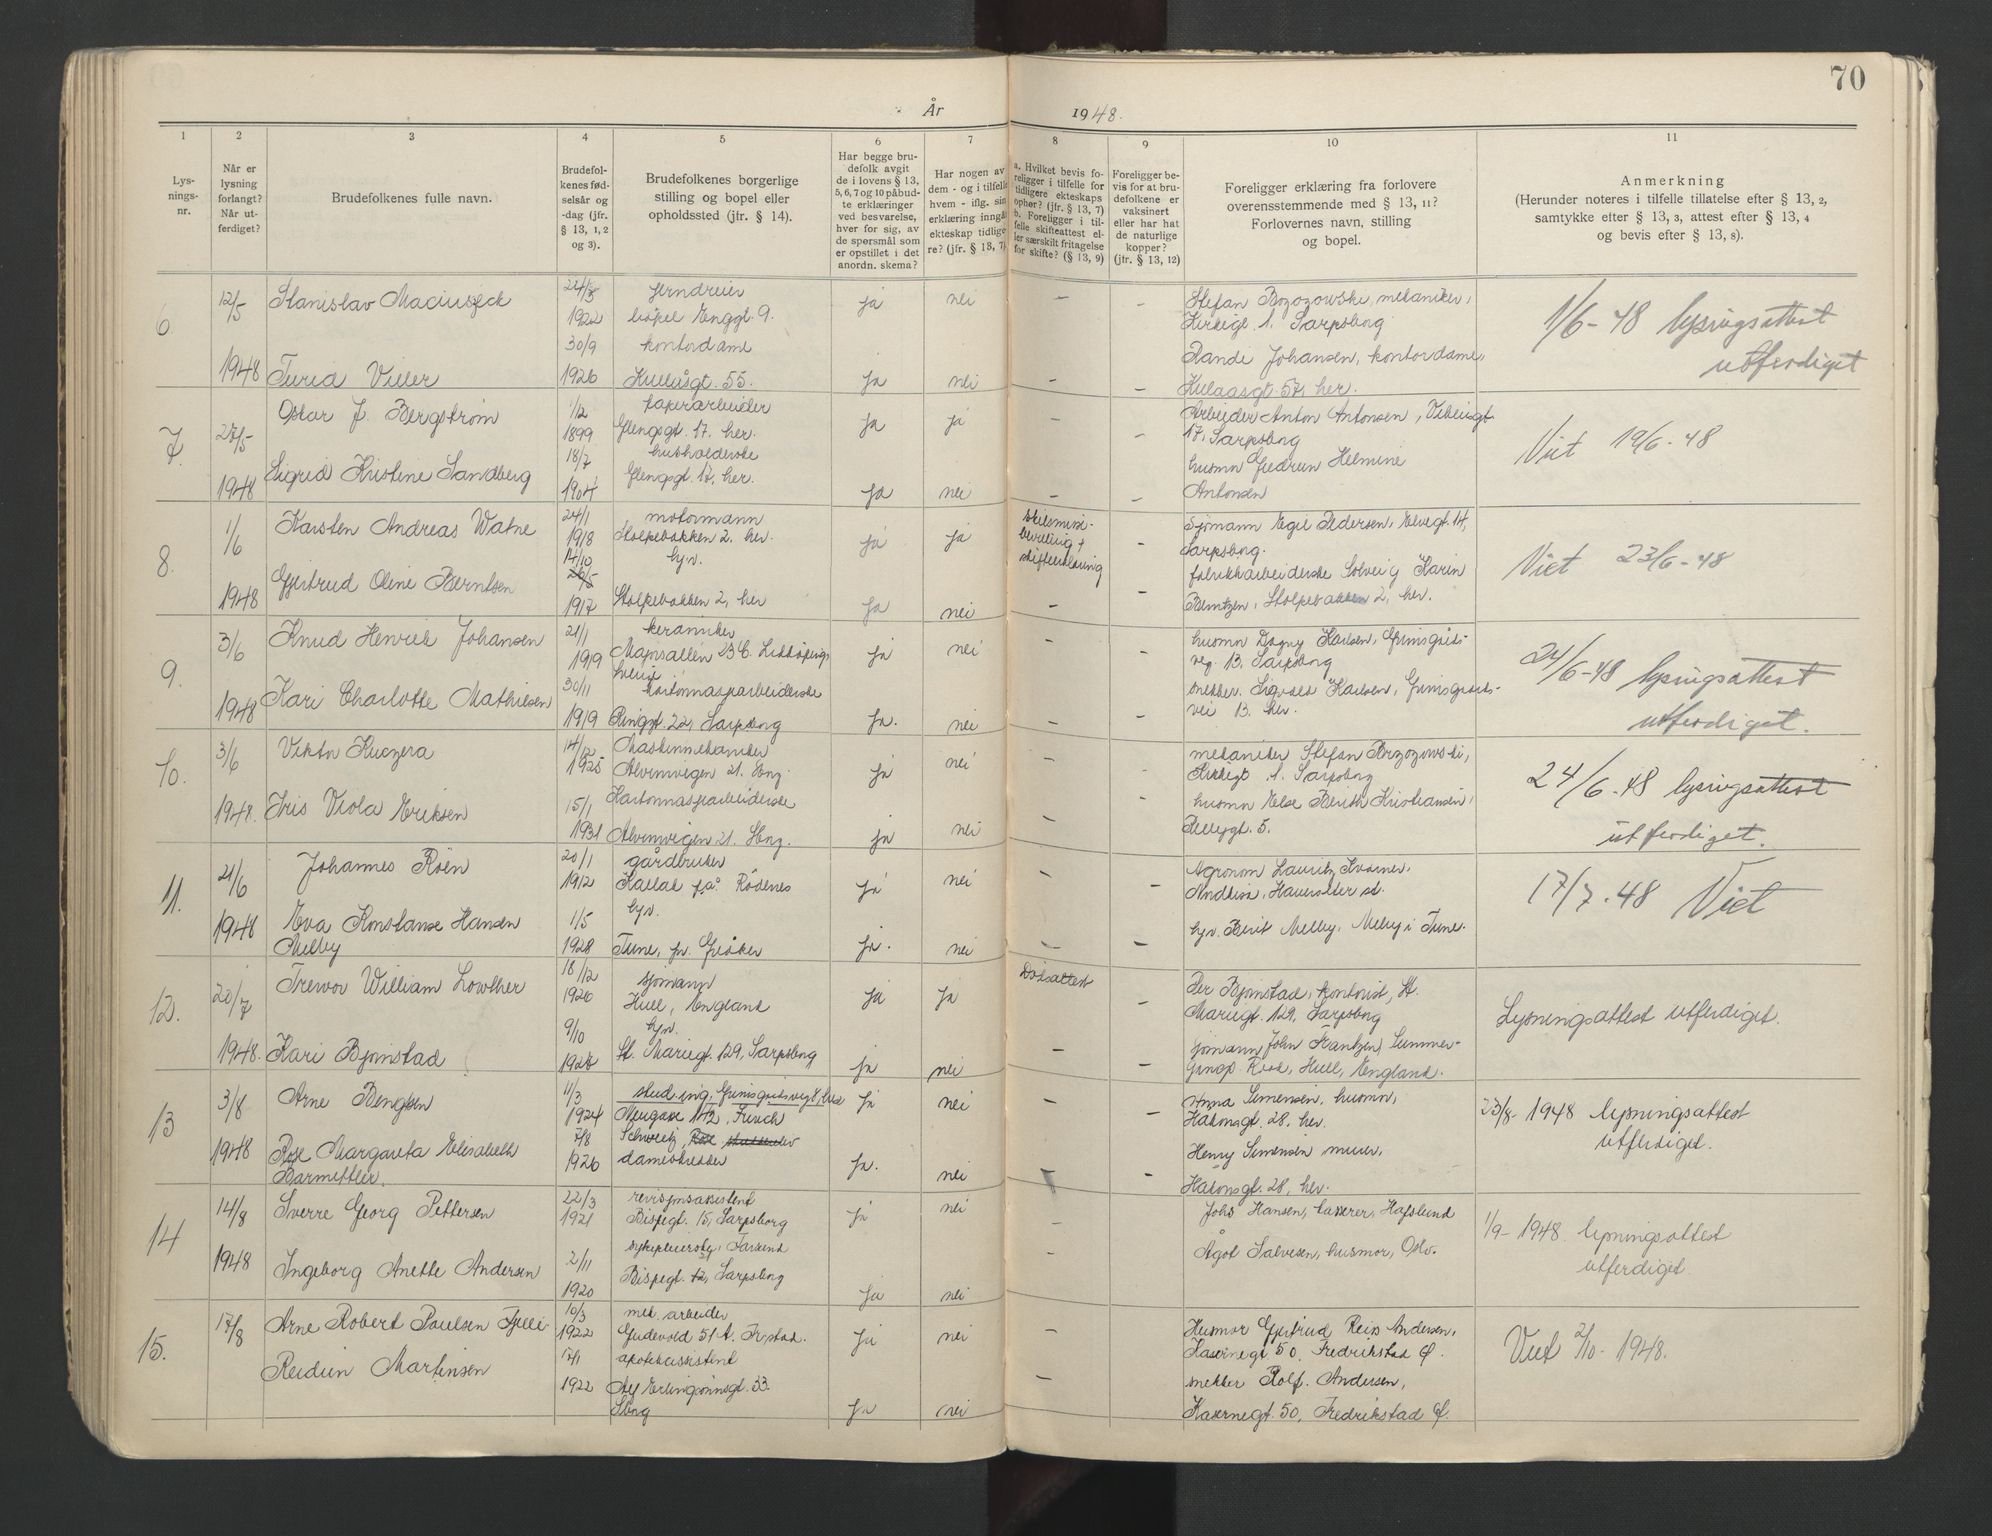 70
År 1948.
1 2 3 4 5 6 7 8 9 10 11
Lys-
nings-
nr.
Når er
lysning
forlangt?
Når ut-
ferdiget?
Brudefolkenes fulle navn.
Brudefol-
kenes fød-
selsår og
-dag (jfr.
§ 13, 1, 2
og 3).
Brudefolkenes borgerlige
stilling og bopel eller
opholdssted (jfr. § 14).
Har begge bru-
defolk avgit
de i lovens § 13,
5, 6, 7 og 10 påbud-
te erklæringer
ved besvarelse,
hver for sig, av
de spørsmål som
er opstillet i det
anordn. skema?
Har nogen av
dem - og i tilfelle
hvem - iflg. sin
erklæring inngåt
ekteskap tidlige-
re? (jfr. § 13, 7)
a. Hvilket bevis fo-
religger i tilfelle for
tidligere ekteskaps
ophør? (jfr. § 13, 7)
b. Foreligger i til-
felle skifteattest el-
ler særskilt fritagelse
for skifte? (§ 13, 9)
Foreligger be-
vis for at bru-
defolkene er
vaksinert
eller har hat
de naturlige
kopper?
(jfr. § 13, 12)
Foreligger erklæring fra forlovere
overensstemmende med § 13, 11?
Forlovernes navn, stilling
og bopel.
Anmerkning
(Herunder noteres i tilfelle tillatelse efter § 13, 2,
samtykke efter § 13, 3, attest efter § 13, 4
og bevis efter § 13, 8).
6 12/5 Stanislav Maciuszek 24/3 jerndreier ja nei – – Stefan Bozozowski, mekaniker,
1922 bopel Enggt. 9. Kirkegt. 1. Sarpsborg
1/6-48 lysingsattest
30/9 kontordame Randi Johansen, kontordame,
utferdiget
1948 Turid Viller 1926 Kulåsgt. 55. ja nei – – Kulaasgt. 57, her.
7. 27/5 Oskar J. Bergstrøm 1/12 papirarbeider ja ja – – Arbeider Anton Antonsen, Vikingt
1899 Glengsgt. 17. her. 17, Sarpsborg
Viet 19/6-48
18/7 husholderske husmn Gudrun Helmine
1948 Sigrid Kristine Sandberg 1904 Glengsgt. 17, her. ja nei – – Antonsen
8. 1/6 Karsten Andreas Watne 24/1 motormann ja ja skilsmisse-
bevilling +
skifteerklæring
– Sjømann Egil Pedersen, Elvegt. 14,
1918 Stolpebakken 2. her. Sarpsborg.
Viet 23/6-48
14/10 hjv. fabrikkarbeiderske Solveig Karin
26/5
1948 Gjertrud Oline Berntsen 1917 Stolpebakken 2, her ja nei – – Berntzen, Stolpebakken 2, her.
9. 3/6 Knud Henrik Johansen 21/1 keramiker ja nei – – husmn Dagny Karlsen, Grimsgårds-
1919 Majorsallén 23 C. Lidköping, veg. 13, Sarpsborg
Sverige
24/6-48 lysingsattest
30/11 kartonnasjearbeiderske snekker. Sigvald Karlsen, Grimsgårds-
utferdiget.
1948 Kari Charlotte Mathisen 1919 Ringgt. 22, Sarpsborg ja. nei – – vei 13. her.
10. 3/6 Viktor Kuczera 14/12 Maskinmekaniker ja nei – – mekaniker Stefan Brzozowski,
1925 Alvimvegen 21. Sbrg. Kirkegt 1. Sarpsborg
24/6-48 lysingsattest
15/1 Kartonnasjearbeiderske husmn Else Berith Kristiansen,
utferdiget.
1948. Iris Viola Eriksen 1931 Alvimvegen 21. Sbrg. ja nei – Pellygt. 5.
11. 21/6 Johannes Roen 20/1 gårdbruker ja nei – – Agronom Lauritz Kvarner,
1912 Kallak på Rödenes
17/7-48 Viet
1/5 hjv.
1948 Eva Konstanse Hansen
Melby
1928 Tune, pr. Greåker ja. nei – – hjv. Berit Melby, Melby i Tune.
12. 20/7 Trevor William Lowther 18/12 sjømann ja ja Dødsattest – Per Bjørnstad, kontorist, St.
1920 Hull, England Mariegt. 129, Sarpsborg
Lysningsattest utferdiget.
9/10 hjv. sjømann John Frantzen, Summer-
1948. Kari Bjørnstad 1928 St. Mariegt. 129, Sarpsborg ja nei – – Road, Hull, England.
13 3/8 Arne Bengtsen 4/3 stud.ing. ja nei – Anna Simensen, husmor,
1924 Hakonsgt. 28, her.
23/8-1948 lysningsattest
utferdiget.
7/8 Schweitz, Henry Simensen murer,
1948 Rose Margareta Elisabeth
Barmettler.
1926 ja. nei – – Hakonsgt. 28, her.
14 14/8 Sverre Georg Pettersen 22/3 revisjonsassistent ja nei – Johs Hansen, kasserer, Hafslund
1921 Bispegt. 15, Sarpsborg
1/9-1948 lysningsattest
utferdiget.
2/11 sykepleierske, Farsund – Ågot Salvesen, husmor, Oslo.
1948 Ingeborg Anette Andersen 1920 Bispegt. 12, Sarpsborg ja nei
15. 17/8 Arne Robert Paulsen Fjelli 10/3 mek. arbeider ja nei – Husmor Gjertrud Reiss Andersen,
1922 Gudevold 51 A. Fr.stad. Kasernegt 50, Fredrikstad Ø.
Viet 2/10-1948.
Reidun Martinsen 17/1 apotekassistent – snekker Rolf. Andersen,
1922 Erlingssønsgt. 33. Sbrg ja nei Kasernegt. 50, Fredrikstad Ø.